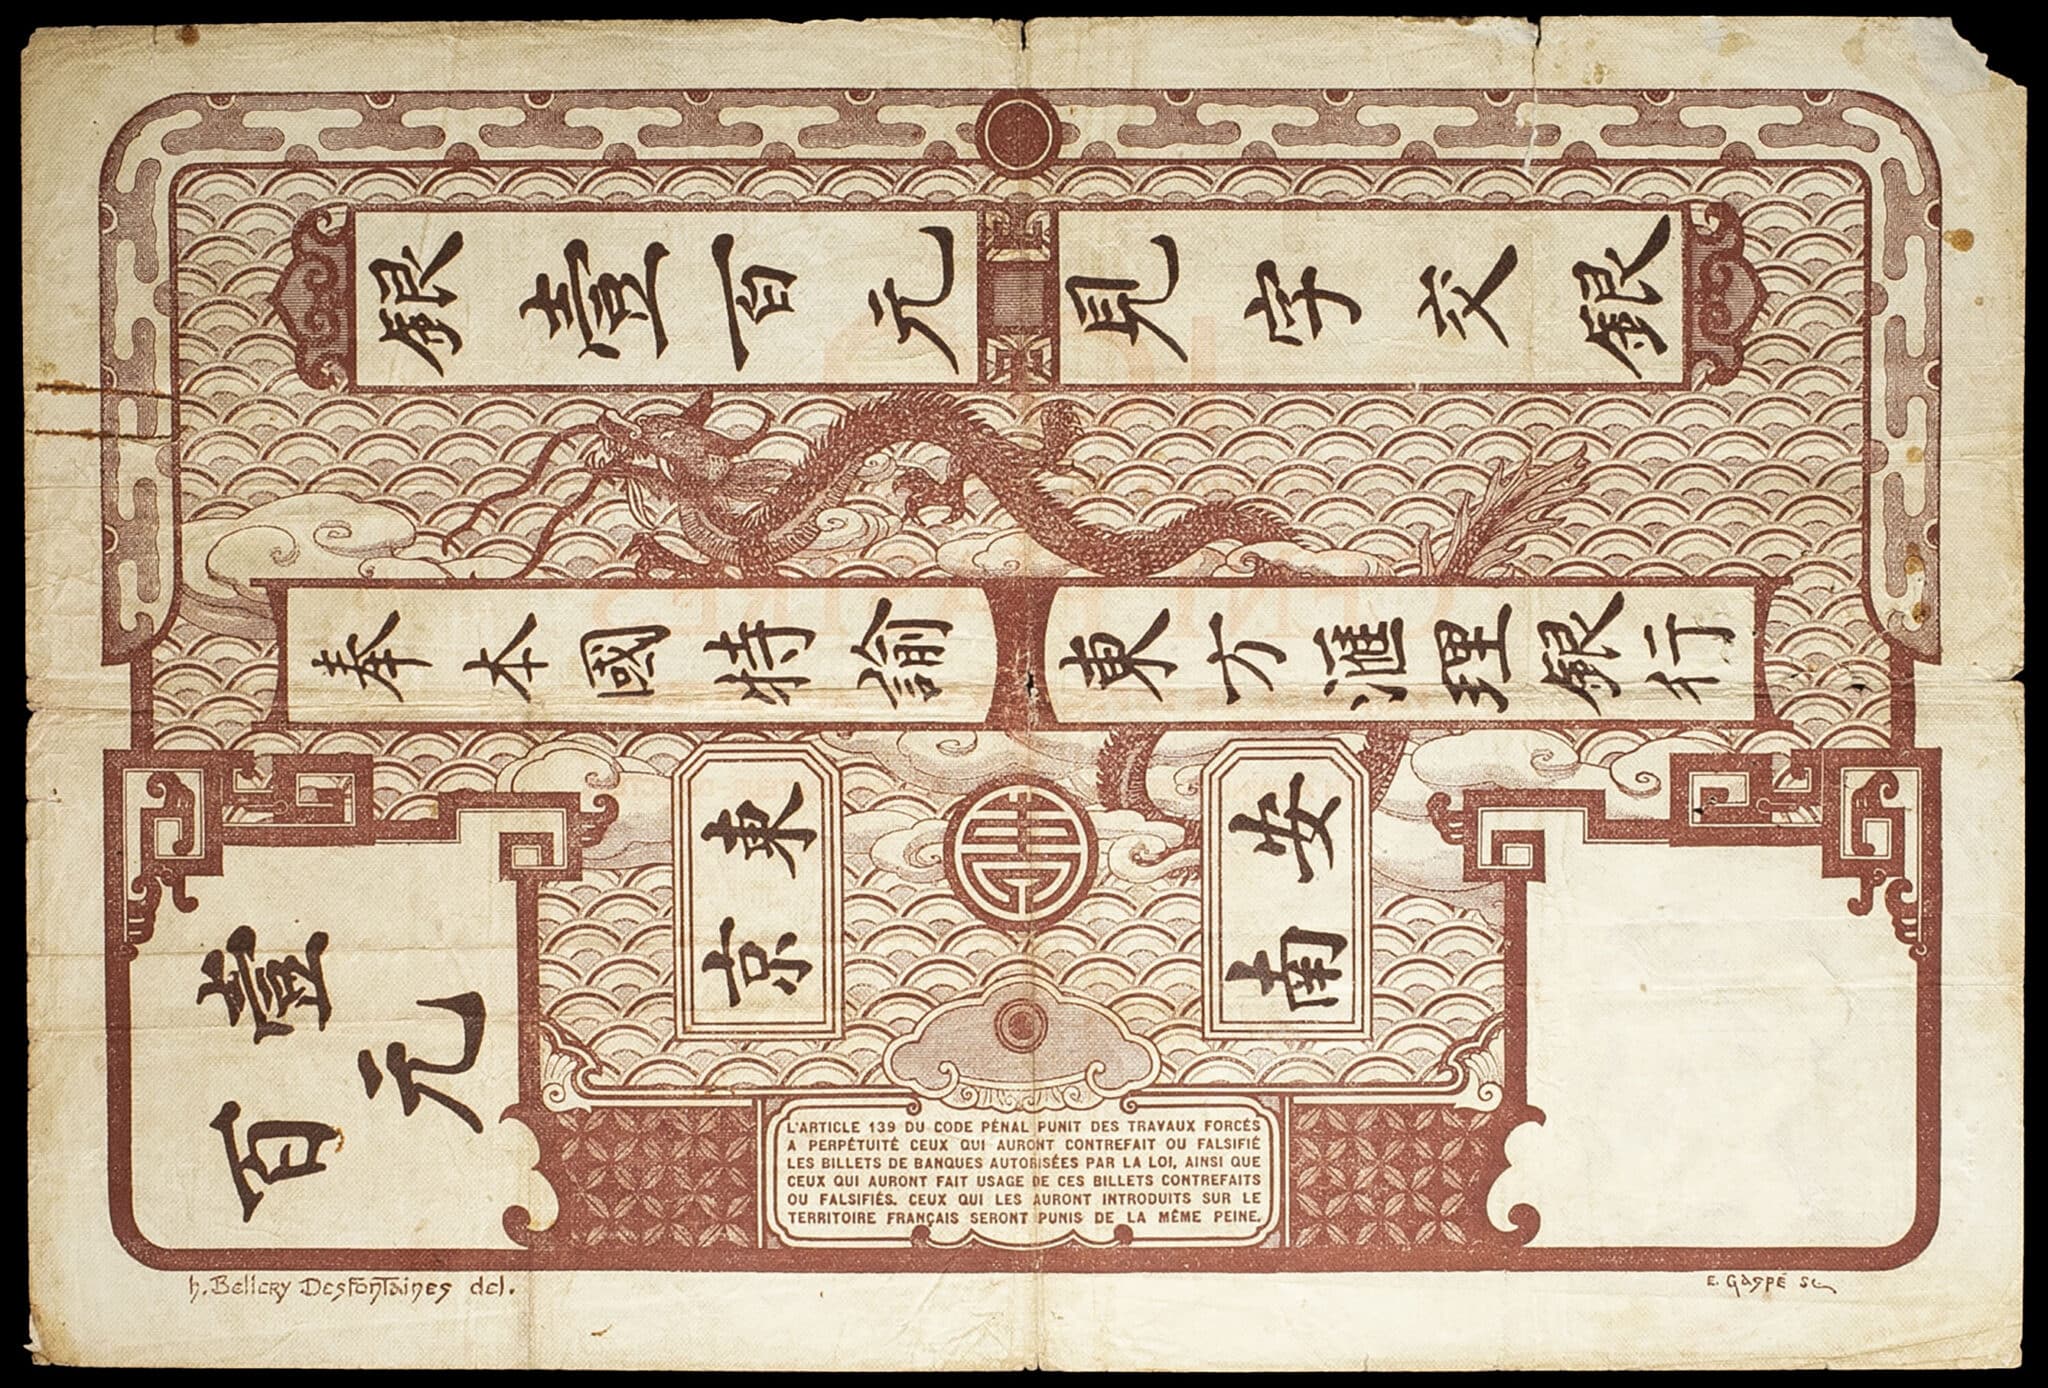 銀壹百元 見字交銀
奉本國特諭 東方滙理銀行
東京
安南
壹百
元
L'ARTICLE 139 DU CODE PÉNAL PUNIT DES TRAVAUX FORCÉS
A PERPÉTUITÉ CEUX QUI AURONT CONTREFAIT OU FALSIFIÉ
LES BILLETS DE BANQUES AUTORISÉES PAR LA LOI, AINSI QUE
CEUX QUI AURONT FAIT USAGE DE CES BILLETS CONTREFAITS
OU FALSIFIÉS. CEUX QUI LES AURONT INTRODUITS SUR LE
TERRITOIRE FRANÇAIS SERONT PUNIS DE LA MÊME PEINE.
h. Bellery Desfontaines del.
E. Gaspé sc